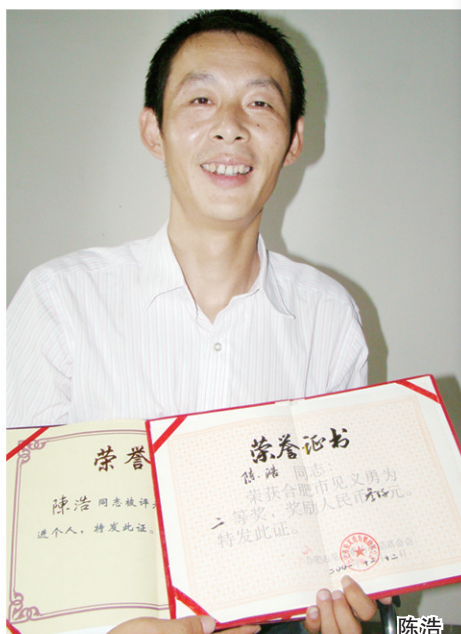 荣誉
陳浩 同志被评
进个人，特发此证。
荣誉证书
陈浩 同志：
荣获合肥市见义勇为
二等奖，奖励人民币元。
特发此证。
陈浩